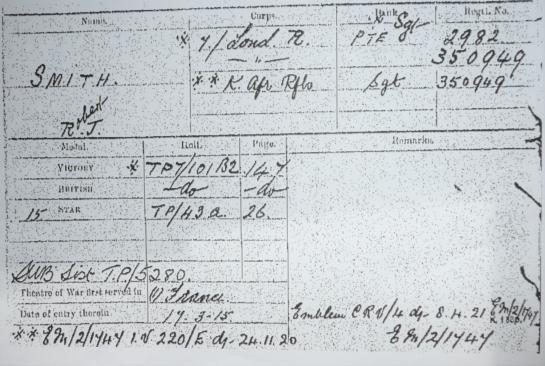 Name. Corps. Rank. Regtl. No.
* 7/Lond R. PTE * Sgt 2982
— „ — 350949
SMITH. ** K. Afr Rfls Sgt 350949
Robert
R. J.
Medal. Roll. Page. Remarks.
VICTORY * TP7/101 B2 147
BRITISH — do — — do —
15 STAR TP/43 a. 26.
SWB List T.P/5280.
Theatre of War first served in (1) France.
Date of entry therein 17-3-15
Emblem C R V/4 d/- 8.4.21 EM/2/1747
** EM/2/1747 I.V 220/E d/- 24.11.20 EM/2/1747